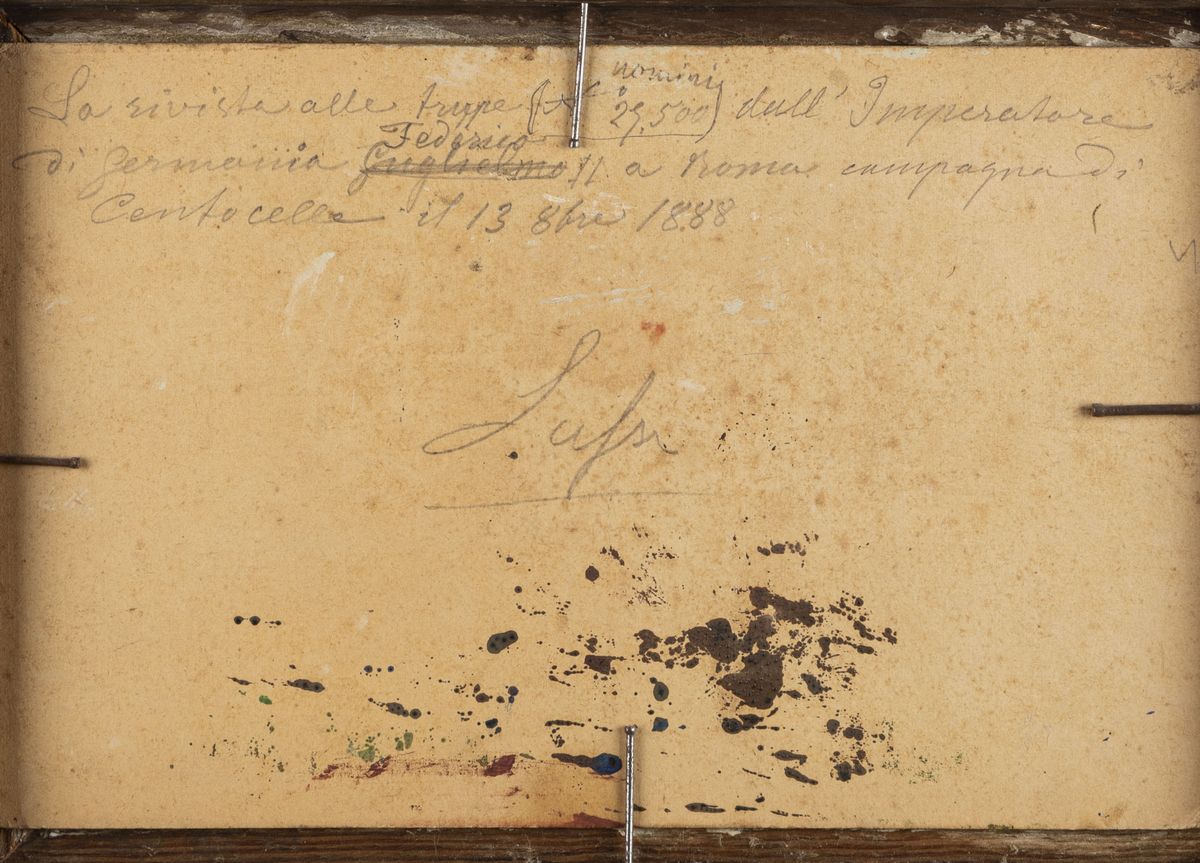 La rivista alle truppe (N.° uomini 29,500) dall' Imperatore
di Germania Federico Guglielmo II a Roma campagna di
Centocelle il 13 8bre 1888